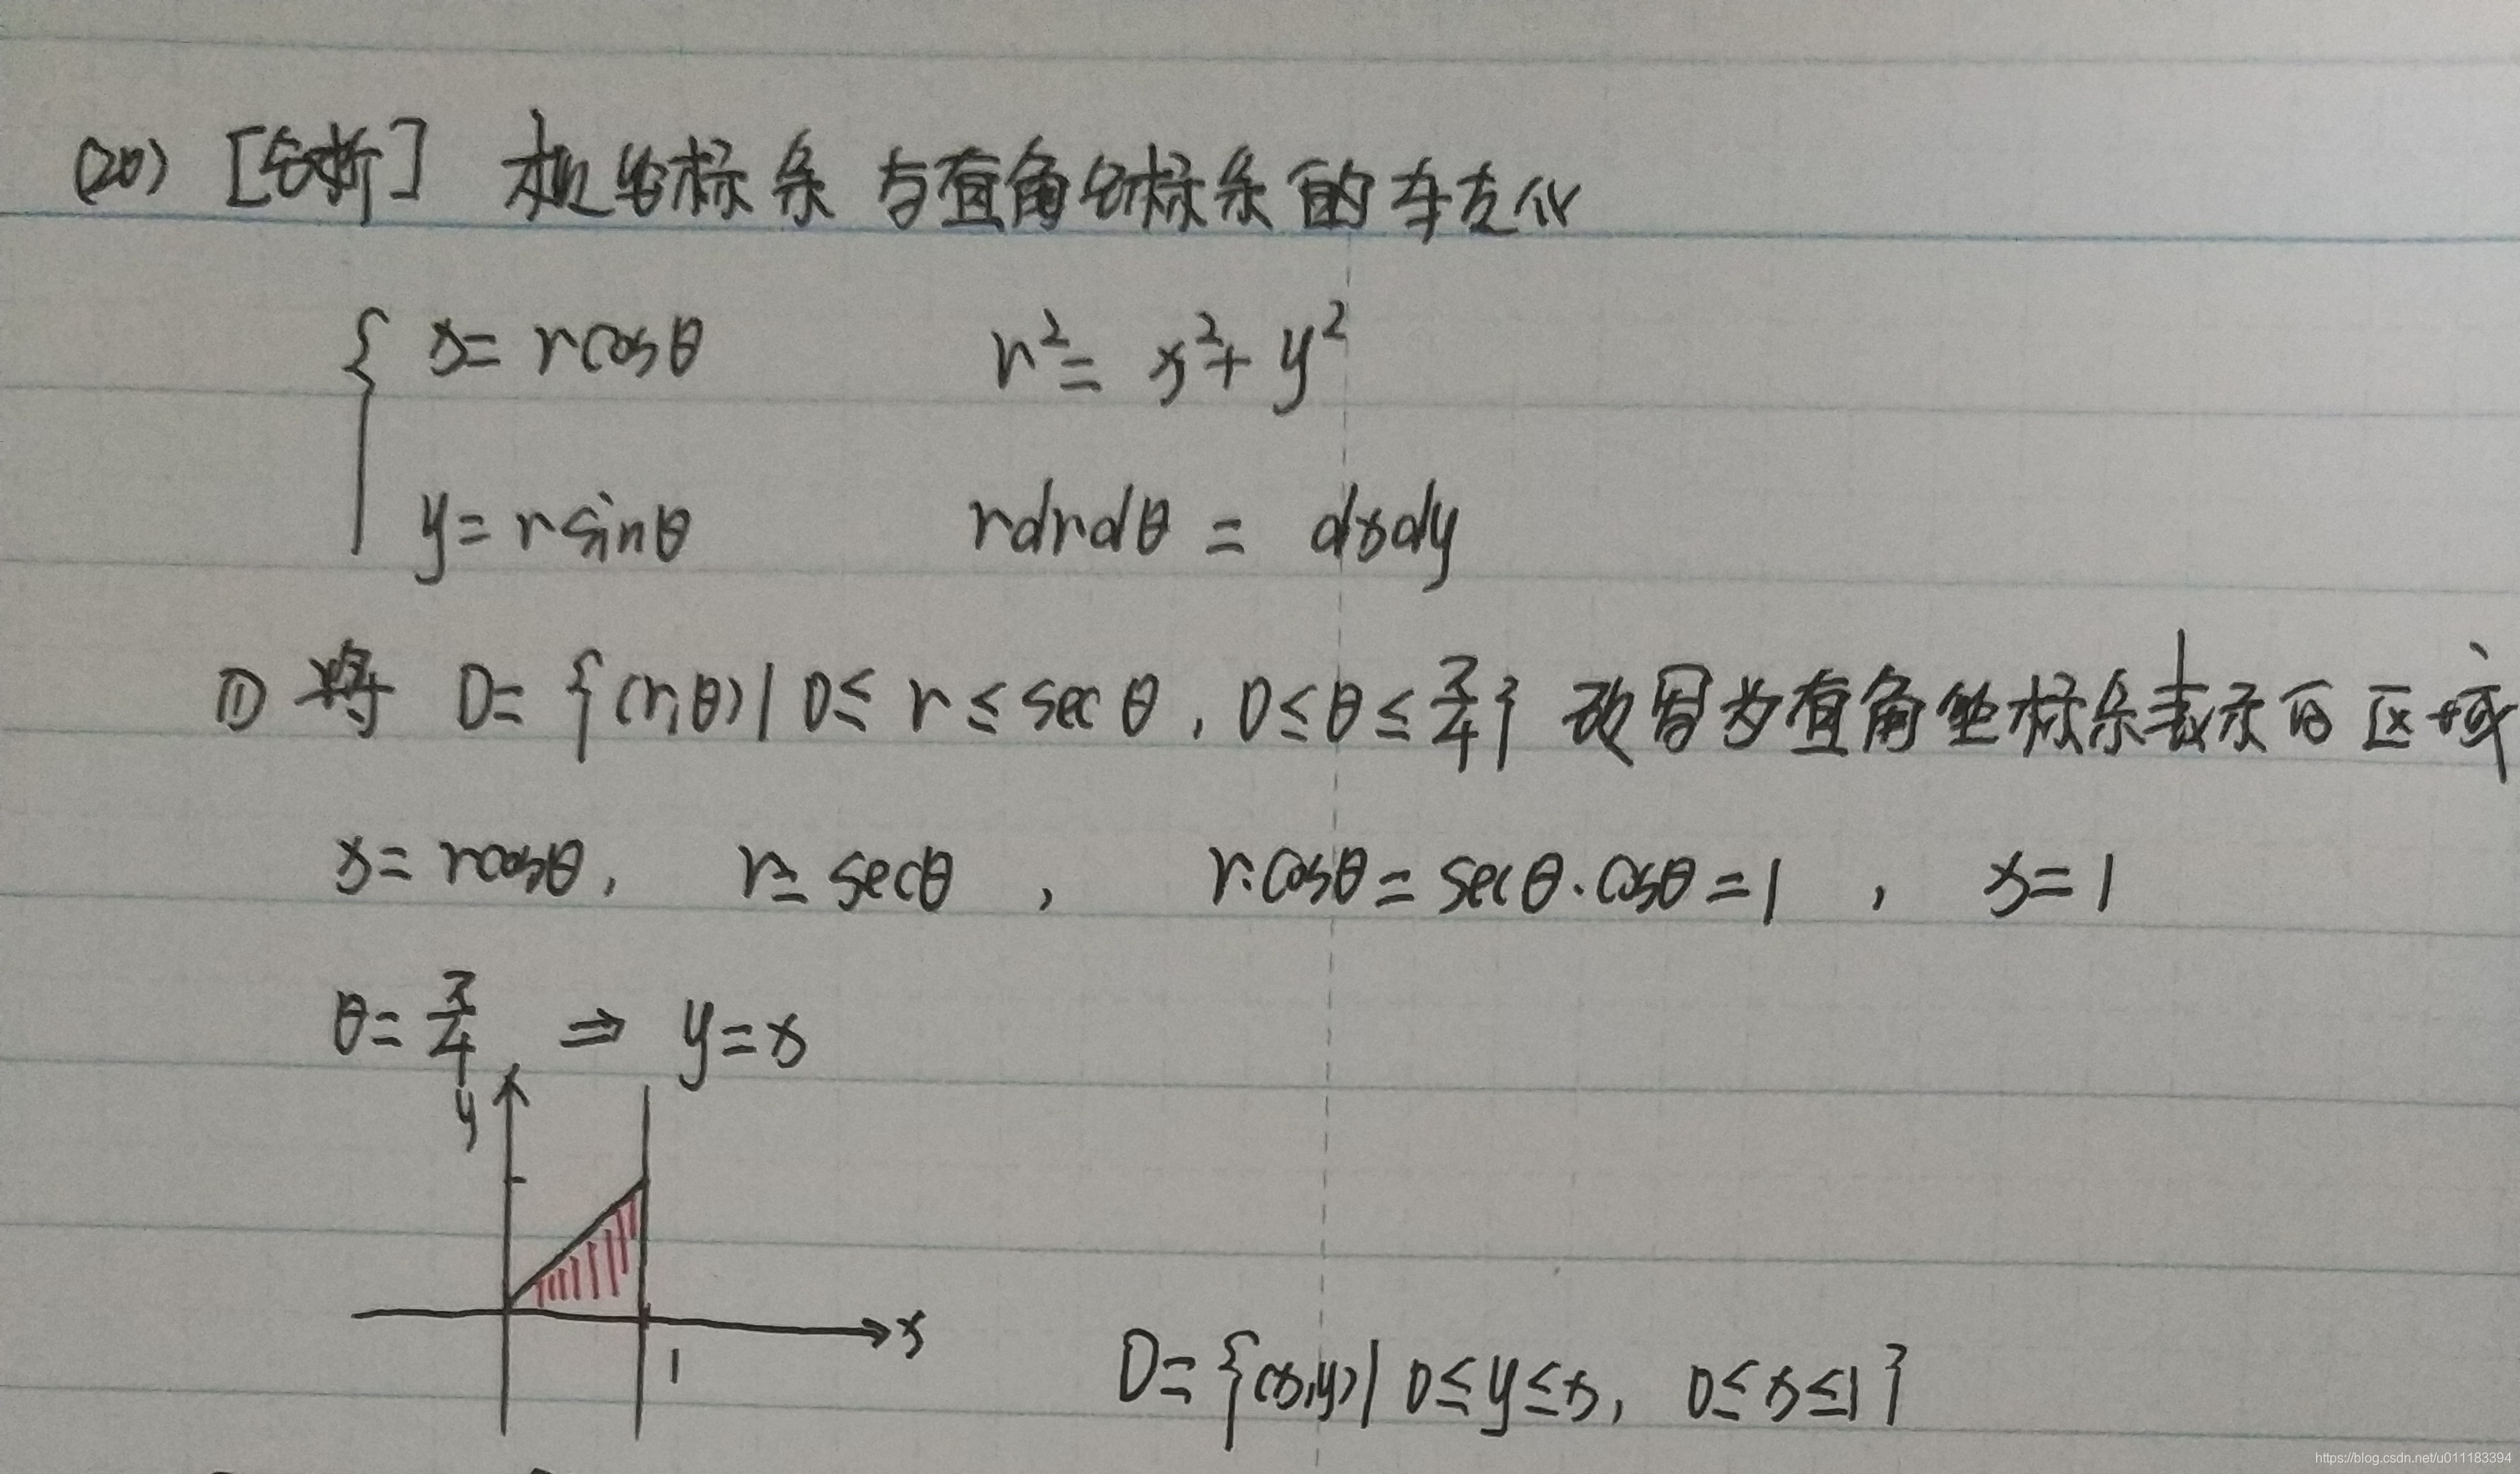 (20) [分析] 极坐标系与直角坐标系的转化
{ x = r cosθ    r² = x² + y²
y = r sinθ    r dr dθ = dx dy
① 将 D = {(r,θ) | 0 ≤ r ≤ sec θ, 0 ≤ θ ≤ π/4} 改写为直角坐标系表示的区域
x = r cosθ, r = secθ, r·cosθ = secθ·cosθ = 1, x = 1
θ = π/4 ⇒ y = x
y
x
1
D = {(x,y) | 0 ≤ y ≤ x, 0 ≤ x ≤ 1}
https://blog.csdn.net/u011183394